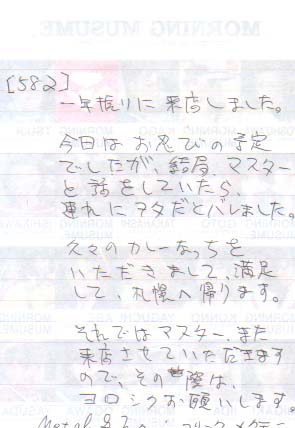 MORNING MUSUME.
[582]
一年振りに来店しました。
今日はお忍びの予定
でしたが、結局、マスター
と話をしていたら、
連れにヲタだとバレました。
久々のカレーなっちを
いただきまして、満足
して、札幌へ帰ります。
それではマスター、また
来店させていただきます
ので、その際は、
ヨロシクお願いします。